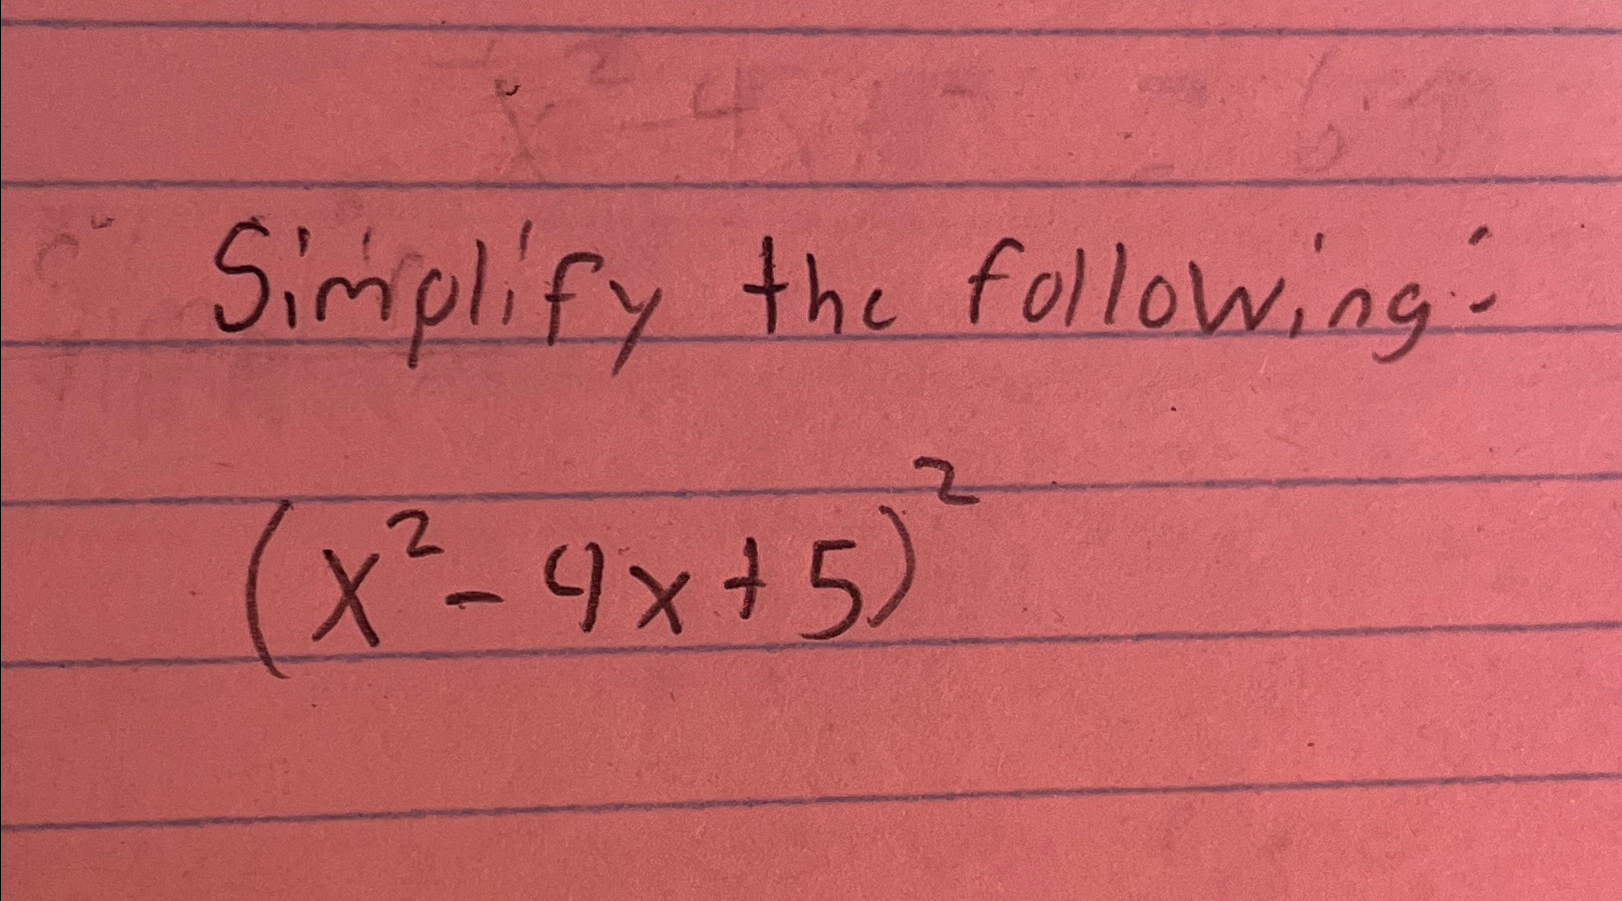 Simplify the following:
(x² - 4x + 5)²